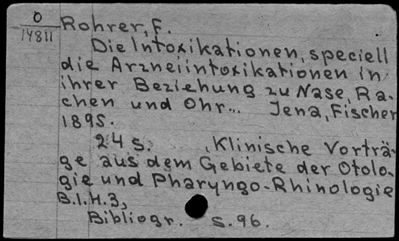 O
14811
Rohrer, F.
Die Intoxikationen, speciell
die Arzneiintoxikationen in
ihrer Beziehung zu Nase, Ra-
chen und Ohr... Jena, Fischer
1895.
24 S. Klinische Vorträ-
ge aus dem Gebiete der Otolo-
gie und Pharyngo-Rhinologie
B.I.H.3,
Bibliogr. S.96.